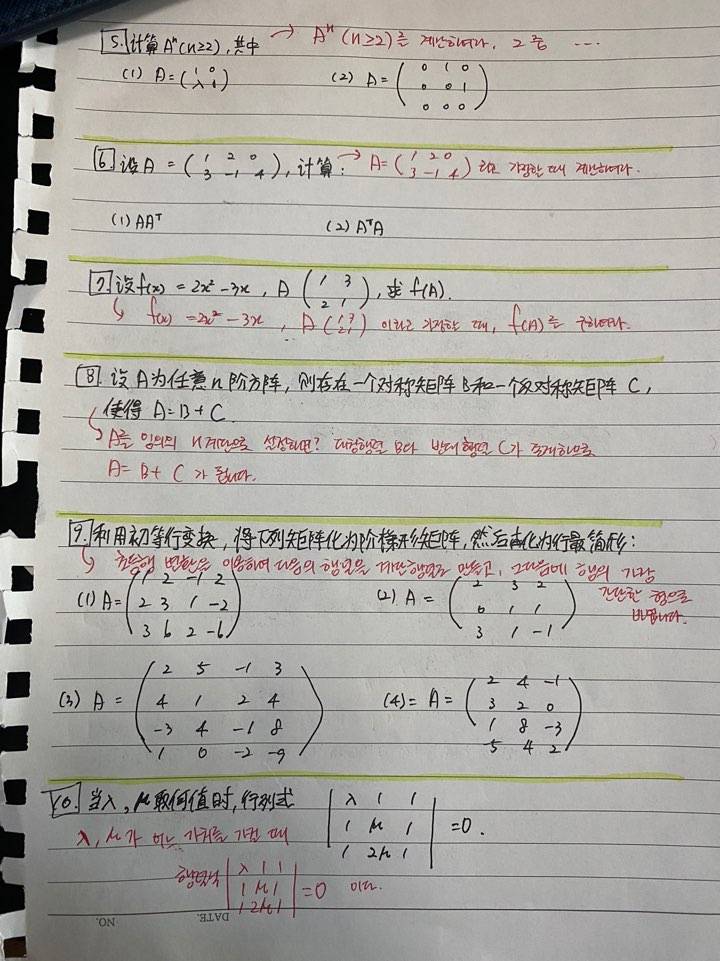 5. 计算 Aⁿ(n≥2), 其中 → Aⁿ (n≥2)를 계산하여라, 그 중 ...
(1) A = (1 0
λ 1) (2) A = (0 1 0
0 0 1
0 0 0)
6. 设 A = (1 2 0
3 -1 4), 计算: → A = (1 2 0
3 -1 4) 라고 가정할 때 계산하여라.
(1) AAᵀ (2) AᵀA
7. 设 f(x) = 2x² - 3x, A (1 3
2 1), 求 f(A).
f(x) = 2x² - 3x, A (1 3
2 1) 이라고 가정할 때, f(A)를 구하여라.
8. 设 A 为任意 n 阶方阵, 则存在一个对称矩阵 B 和一个反对称矩阵 C,
使得 A = B + C
A를 임의의 n계단으로 설정하면? 대칭행렬 B와 반대행렬 C가 존재하므로
A = B + C 가 됩니다.
9. 利用初等行变换, 将下列矩阵化为阶梯形矩阵, 然后再化为行最简形:
초등행 변환을 이용하여 다음의 행렬을 계단행렬로 만들고, 그다음에 행의 가장
간단한 형으로
바꿉니다.
(1) A = (1 2 -1 2
2 3 1 -2
3 6 2 -6) (2) A = (2 3 2
0 1 1
3 1 -1)
(3) A = (2 5 -1 3
4 1 2 4
-3 4 -1 8
1 0 -2 -9) (4) = A = (2 4 -1
3 2 0
1 8 -3
5 4 2)
10. 当 λ, μ 取何值时, 行列式 |λ 1 1
1 μ 1
1 2μ 1| = 0.
λ, μ가 어느 가치를 가질 때
행렬식 |λ 1 1
1 μ 1
1 2μ 1| = 0 이다.
NO. DATE.